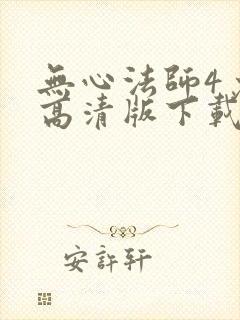 無心法師4
高清版下載
安許軒